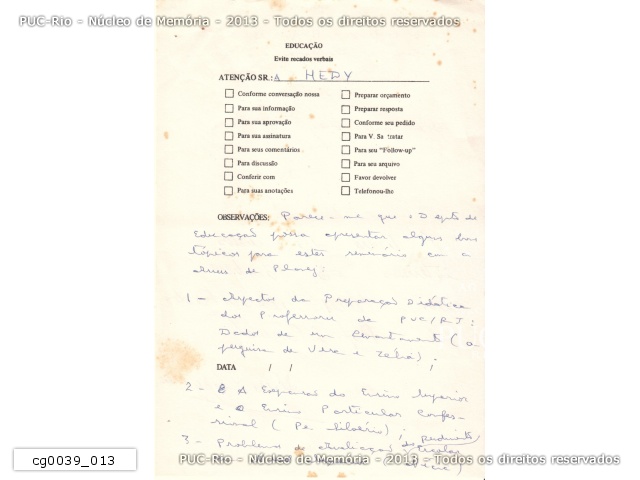 PUC-Rio - Núcleo de Memória - 2013 - Todos os direitos reservados
EDUCAÇÃO
Evite recados verbais
ATENÇÃO SR.: A HEDY
Conforme conversação nossa
Para sua informação
Para sua aprovação
Para sua assinatura
Para seus comentários
Para discussão
Conferir com
Para suas anotações
Preparar orçamento
Preparar resposta
Conforme seu pedido
Para V. Sa tratar
Para seu "Follow-up"
Para seu arquivo
Favor devolver
Telefonou-lhe
OBSERVAÇÕES: Parece-me que o Depto de
Educação possa apresentar alguns bons
tópicos para este seminário com a
de
1 - Aspectos da Preparação Didática
dos Professores da PUC/RJ:
Dados de um Levantamento (a
pesquisa da Vera e Zélia);
DATA / /
2 - A Expansão do Ensino Superior
e o Ensino Particular Confes-
sional (Pe. );
3 - Problemas de avaliação de
cg0039_013
PUC-Rio - Núcleo de Memória - 2013 - Todos os direitos reservados